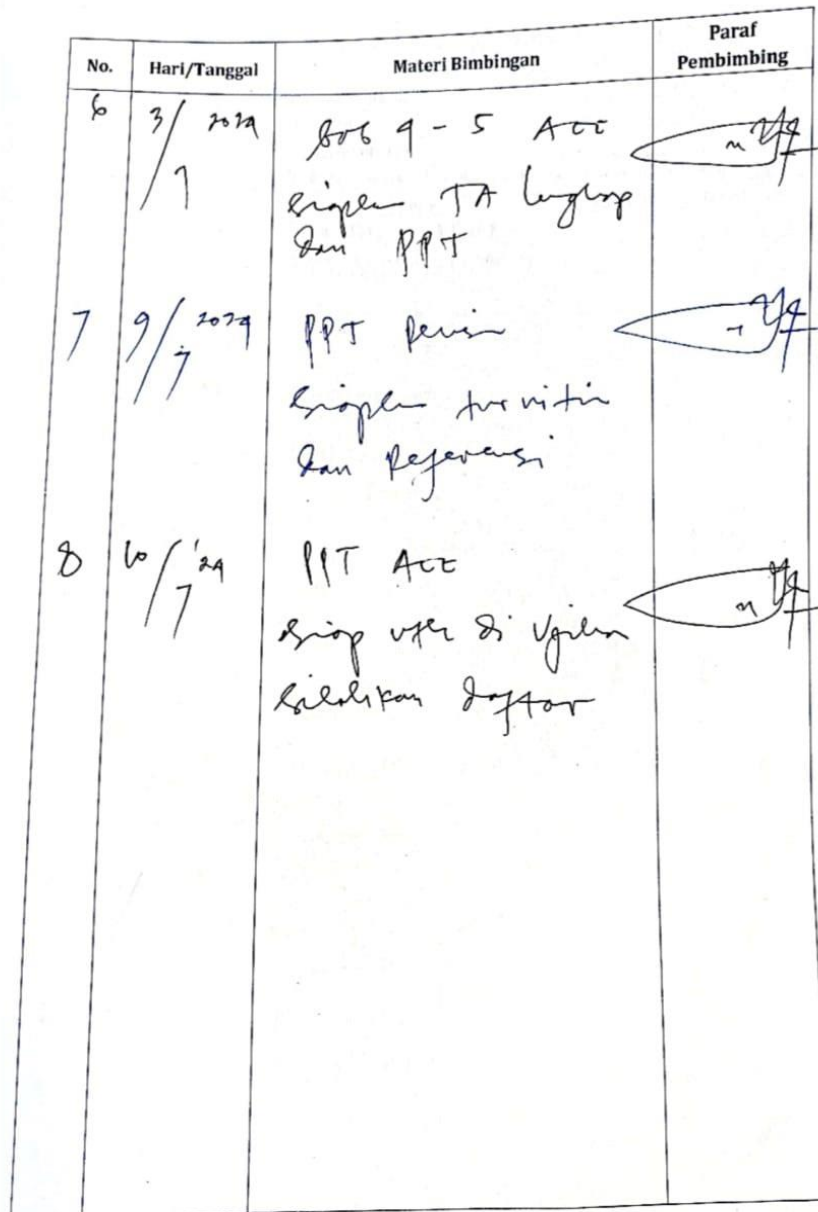 No. Hari/Tanggal Materi Bimbingan Paraf Pembimbing
6 3/7 2024 Bab 4 - 5 ACC
siapkan TA lengkap
dan PPT
7 9/7 2024 PPT Revisi
siapkan turnitin
dan Referensi
8 10/7 '24 PPT ACC
siap utk di Ujikan
silahkan daftar